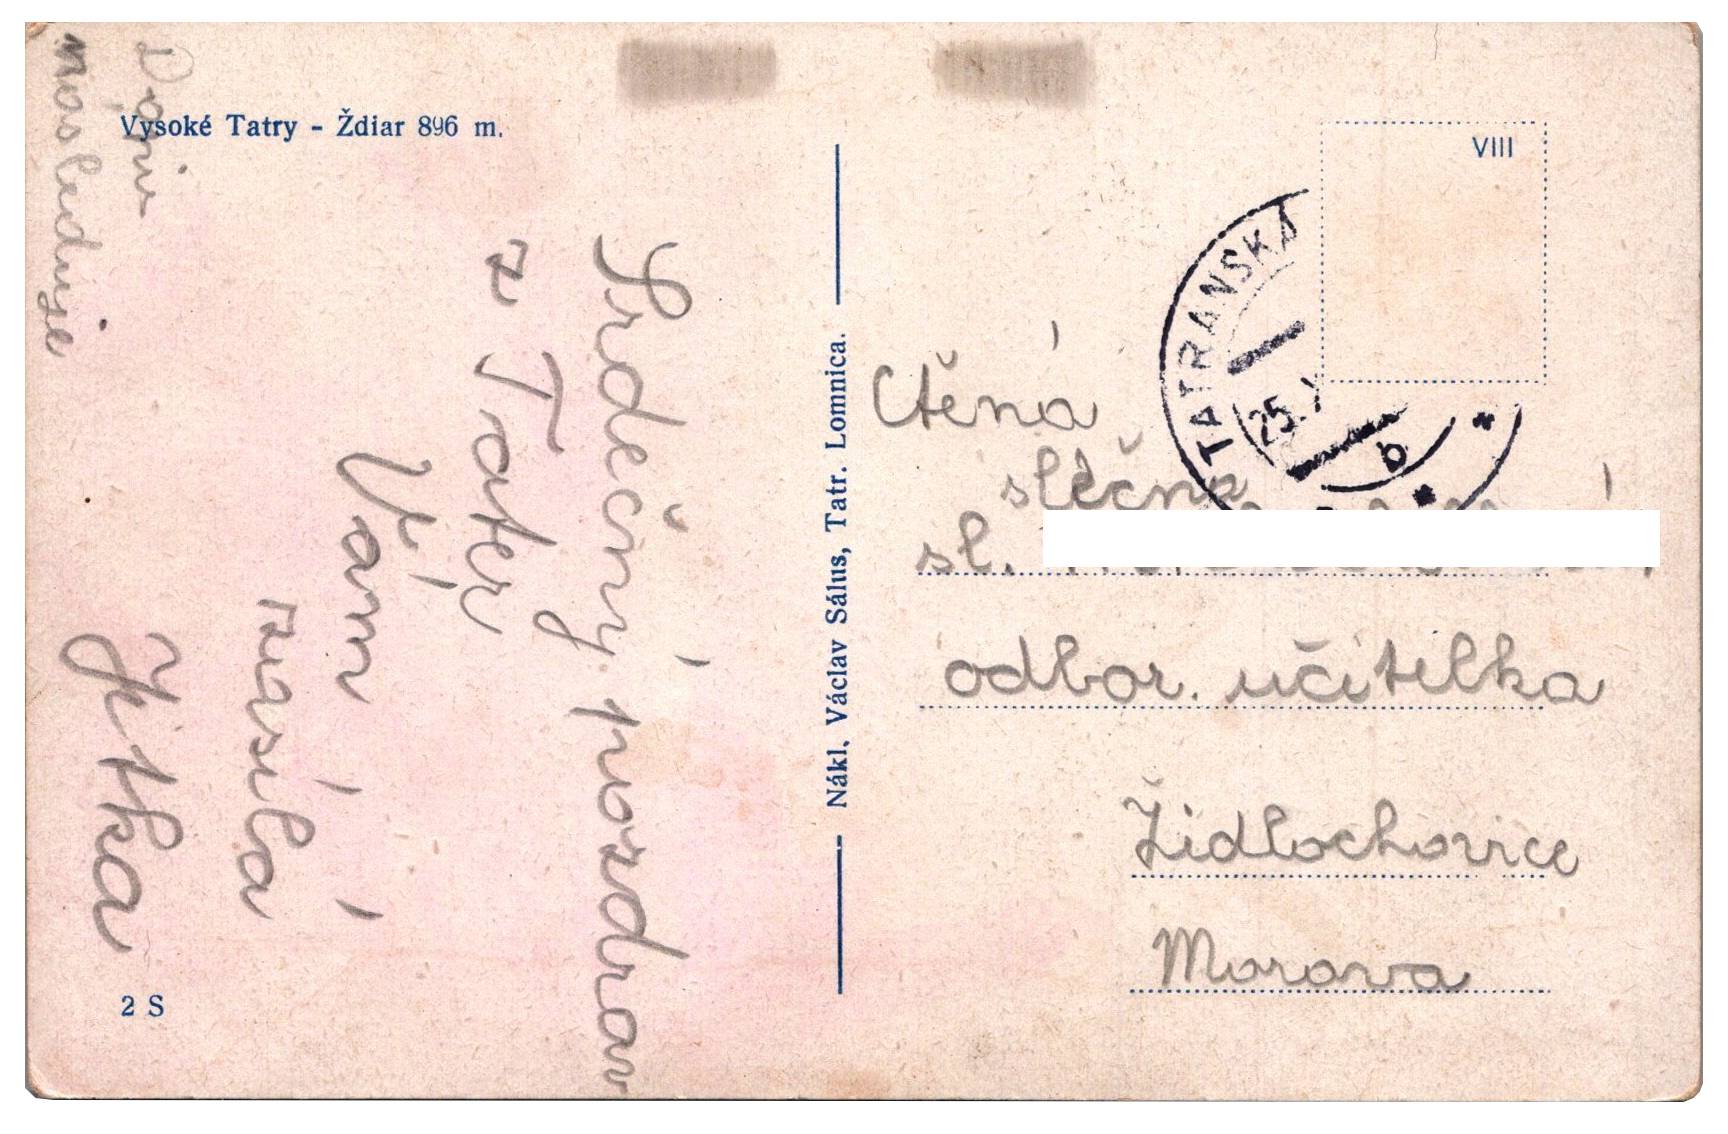 Vysoké Tatry - Ždiar 896 m.
Srdečný pozdrav
z Tater
Vám
zasílá
Jitka
Dopis
následuje
2 S
Nákl. Václav Sálus, Tatr. Lomnica.
VIII
TATRANSKÁ
25. X
b
Ctěná
slečna
sl.
odbor. učitelka
Židlochovice
Morava